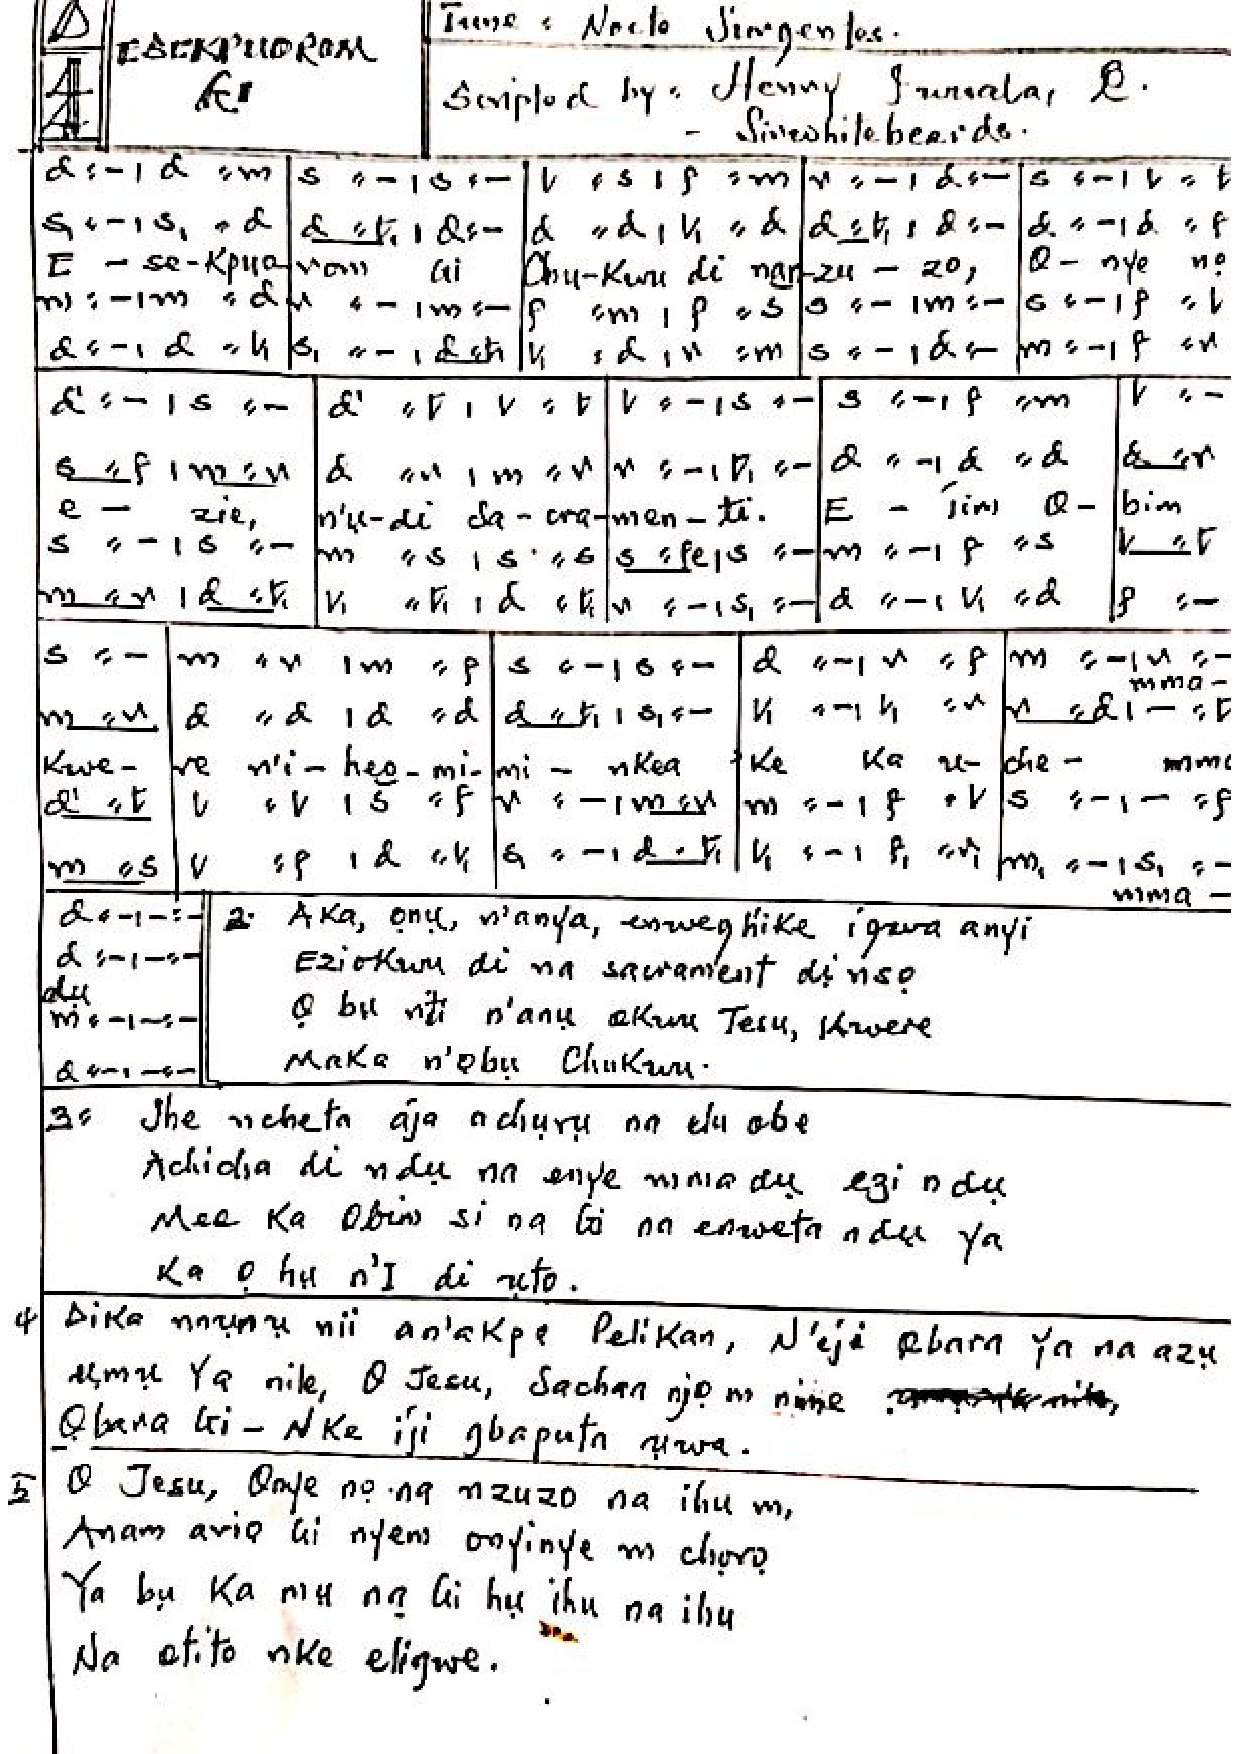 ESEKPUOROM
GI
Tune : Nocte Surgentes.
Scripted by : Henny
- Sirwhitebeards.
d :- | d :m | s :- | s :- | l :s | f :m | r :- | d :- | s :- | l :t
s₁ :- | s₁ :d | d :t₁ | d :- | d :d | l₁ :d | d :t₁ | d :- | d :- | d :f
E - se-kpuo-rom Gi Chu-Kwu di nan-zu - zo, O- nye nọ
m :- | m :d | r :- | m :- | f :m | f :s | s :- | m :- | s :- | f :l
d :- | d :l₁ | s₁ :- | d :t₁ | l₁ :d | r :m | s :- | d :- | m :- | f :r
d' :- | s :- | d' :t | l :t | l :- | s :- | s :- | f :m | l :-
s :f | m :r | d :r | m :r | r :- | t₁ :- | d :- | d :d | d :r
e - zie, n'ụ-di Sa-cra-men-ti. E - jim O- bim
s :- | s :- | m :s | s :s | s :fe | s :- | m :- | f :s | l :t
m :r | d :t₁ | l₁ :t₁ | d :t₁ | r :- | s₁ :- | d :- | l₁ :d | f :-
s :- | m :r | m :f | s :- | s :- | d :- | r :f | m :- | r :-
mma -
m :r | d :d | d :d | d :t₁ | s₁ :- | l₁ :- | l₁ :r | r :d | - :t
Kwe- re n'i-heọ-mi-mi - nkea Ke Ka u- che - mma
d' :t | l :l | s :f | r :- | m :r | m :- | f :l | s :- | - :f
m :s | l :f | d :l₁ | s₁ :- | d :t₁ | l₁ :- | f₁ :r₁ | m₁ :- | s₁ :-
mma -
d :- | - :-
d :- | - :-
dụ
m :- | - :-
d :- | - :-
2. Aka, ọnụ, n'anya, enweghike igwa anyi
Eziokwu di na sacrament dị nsọ
Ọ bụ nti n'anụ okwu Jesu, Kwere
Maka n'ọbụ Chukwu.
3: Ihe ncheta aja achụrụ na elu obe
Achicha di ndụ na enye mmadụ ezi ndụ
Mee ka Obim si na Gi na enweta ndụ ya
Ka ọ hụ n'I di ụto.
4 Dika nnụnụ nii an'akpọ Pelikan, N'eji ọbara ya na azụ
ụmụ Ya nile, O Jesu, Sachaa njọ m niine
Ọbara Gi - Nke iji gbaputa ụwa.
5 O Jesu, Onye nọ na nzuzo na ihu m,
Anam ariọ Gi nyem onyinye m chọrọ
Ya bụ Ka mụ na Gi hụ ihu na ihu
Na otito nke eligwe.